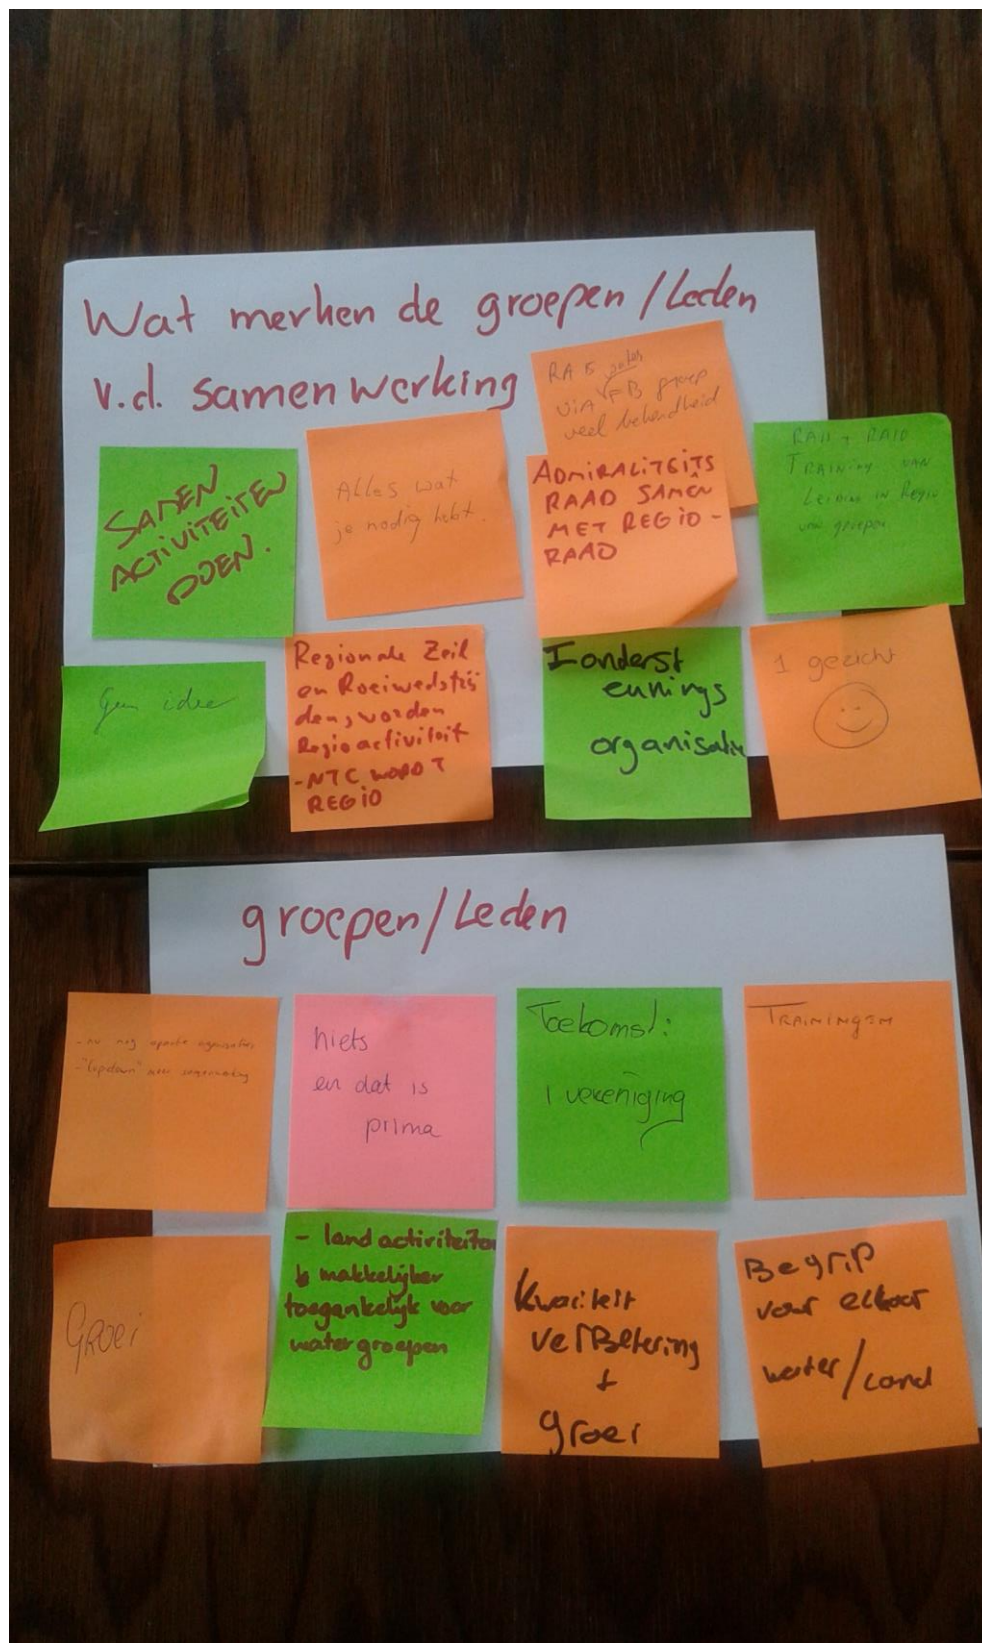 Wat merken de groepen/Leden
v.d. samenwerking
RA 5
via FB groep
veel bekendheid
SAMEN
ACTIVITEITEN
DOEN.
Alles wat
je nodig hebt.
ADMIRALITEITS
RAAD SAMEN
MET REGIO-
RAAD
TRAINING VAN
LEIDING IN Regio
van groepen
Geen idee
Regionale Zeil
en Roeiwedstrij
den, worden
Regioactiviteit
-NTC WORDT
REGIO
1 onderst
eunings
organisatie
1 gezicht
groepen/Leden
- nu nog aparte organisaties
- "Topdown" meer samenwerking
niets
en dat is
prima
Toekomst:
1 vereniging
TRAININGEN
Groei
- landactiviteiten
makkelijker
toegankelijk voor
watergroepen
Kwaliteit
verBetering
+
groei
Begrip
voor elkaar
water/Land